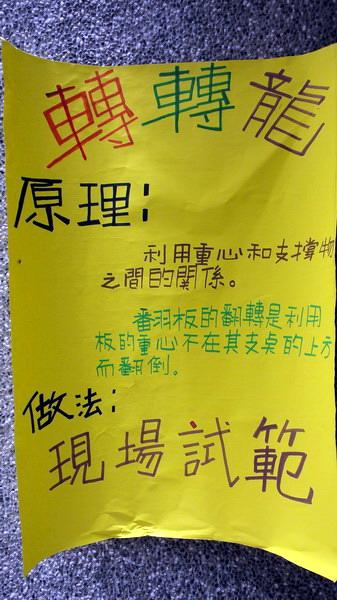 轉轉龍
原理:
利用重心和支撐物
之間的關係。
翻板的翻轉是利用
板的重心不在其支點的上方
而翻倒。
做法:
現場試範